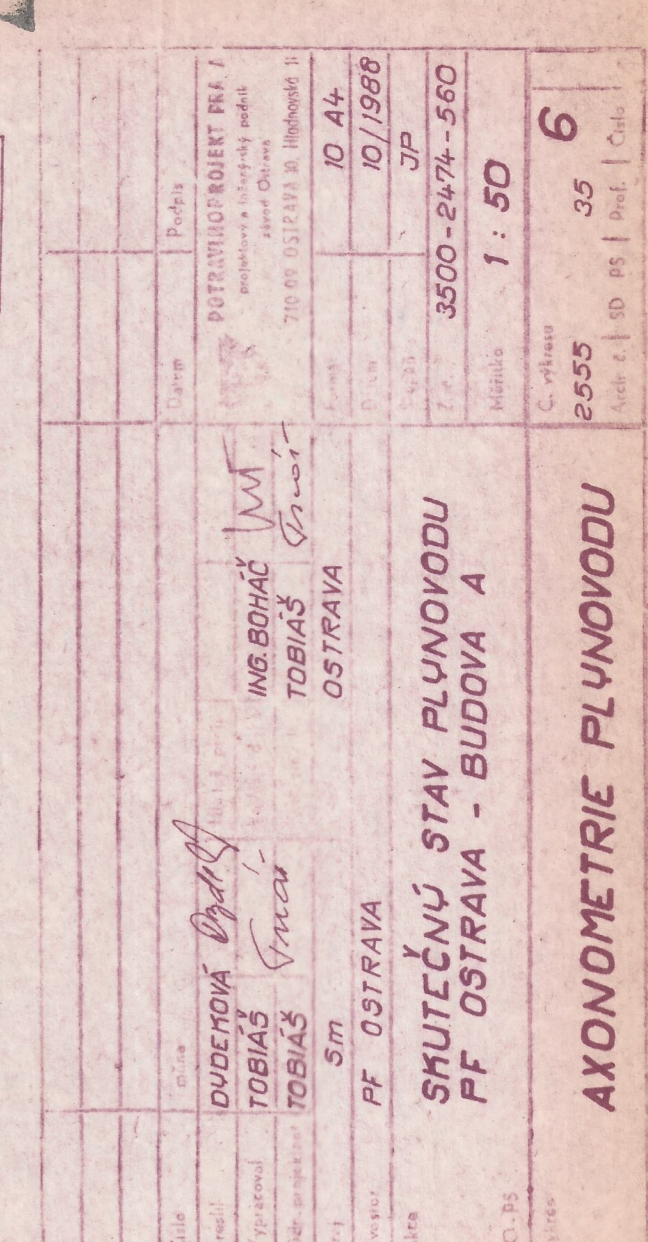 Změna Datum Podpis
DYDEKOVÁ
TOBIÁŠ
TOBIÁŠ
ING. BOHÁČ
TOBIÁŠ
POTRAVINOPROJEKT PRA
projektový a inženýrský podnik
závod Ostrava
710 09 OSTRAVA 10, Hladnovská
Sm OSTRAVA
PF OSTRAVA
10 A4
10/1988
JP
3500-2474-560
SKUTEČNÝ STAV PLYNOVODU
PF OSTRAVA - BUDOVA A
Měřítko 1 : 50
AXONOMETRIE PLYNOVODU
Č. výkresu
2555 35 6
Arch č. SD PS Prof. Číslo